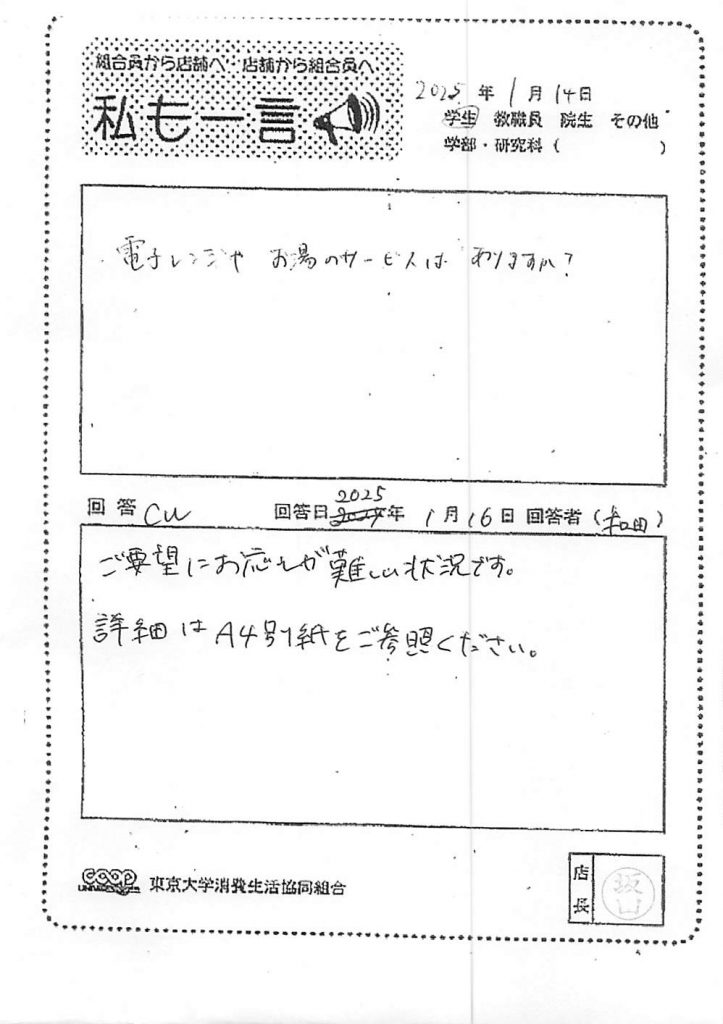 組合員から店舗へ 店舗から組合員へ
私も一言
2025 年 1 月 14 日
学生 教職員 院生 その他
学部・研究科 ( )
電子レンジや お湯のサービスは ありますか?
回答
回答日 2025 年 1 月 16 日 回答者 (和田)
ご要望にお応えが難しい状況です。
詳細は A4別紙をご参照ください。
coop 東京大学消費生活協同組合
店長